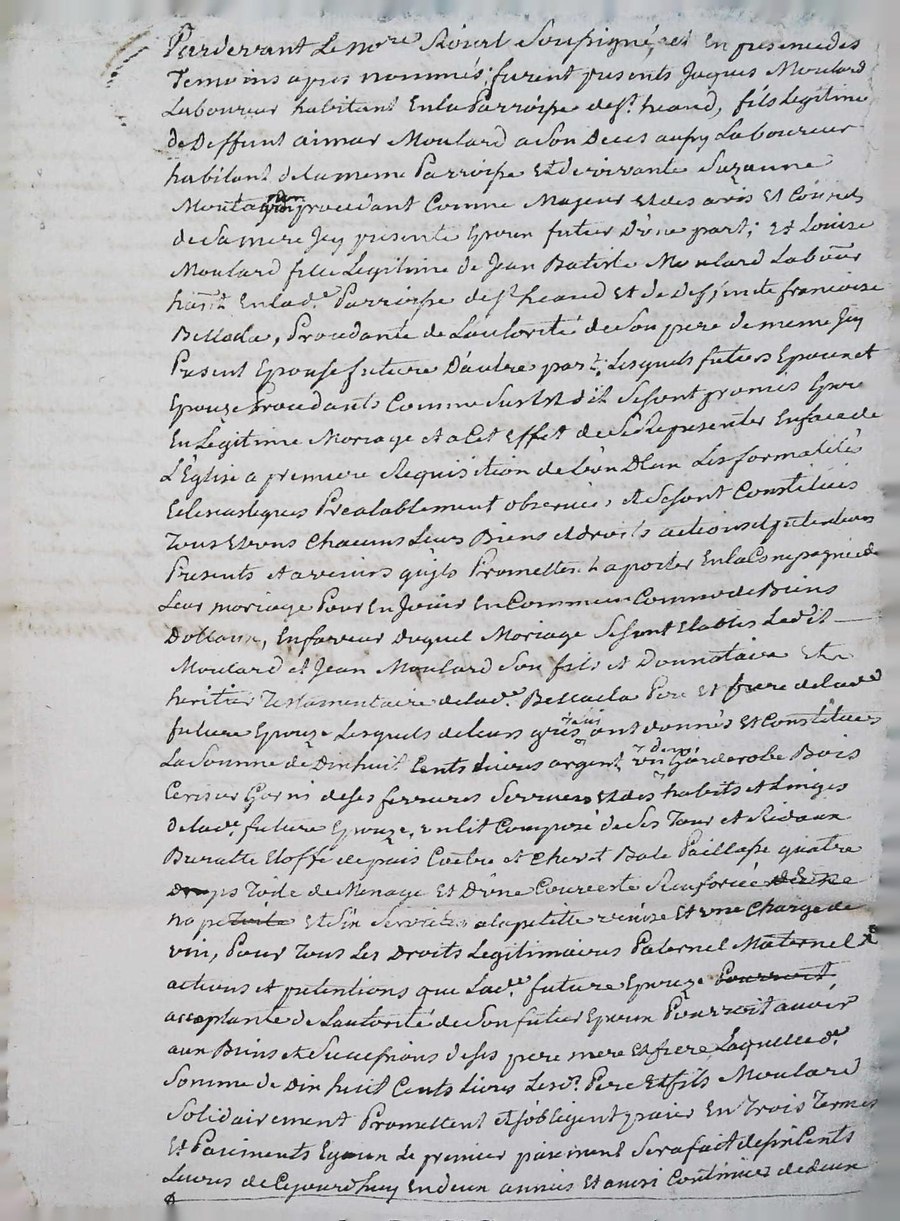 Pardevant Le no.re Royal Soussigné, et En presence des
Temoins apres nommés; furent presents Jaques Moulard
Laboureur habitant En la Parroisse de St. heand, fils Legitime
de Deffunt aimar Moulard a Son Deces aussy Laboureur
habitant de la meme Parroisse Et de vivante Suzanne
procedant Comme Majeur Et des avis Et Conseils
de Sa mere Jcy presente Epoux futur D'une part; Et Louise
Moulard fille Legitime de Jean Batiste Moulard Labour
hant. En lad.e Parroisse de St. heand Et de Deffunte francoise
Procedante de L'autorité de Son pere de meme Jcy
Present Epouse future D'autre part; Lesquels futurs Epoux et
Epouze Procedants Comme Sus Est dit Se Sont promis Epou
En Legitime Mariage Et a Cet Effet de Se Representer En face de
L'Eglise a premiere Requisition de L'un D'eux Les formalités
Eclesiastiques Prealablement observées, Et Se Sont Constitués
Tous Et uns Chacuns Leurs Biens Et droits actions Et pretentions
Presents Et avenirs qu'jls Promettent aporter En la Compagnie de
Leur mariage Pour En Jouir En Commun Comme de Biens
Dottaux, En faveur Duquel Mariage Se Sont Etablis Ledit
Moulard et Jean Moulard Son fils et Donnataire Et
heritier Testamentaire de lad.e Pere Et frere de lad.e
future Epouze Lesquels de Leurs grés ont donnés Et Constitués
La Somme de Dix huit Cents Livres argent un Garderobe Bois
Cerisier Garni de Ses ferrures Serrures Et des habits Et Linges
de lad.e future Epouze, un lit Composé de Ses Tour et Rideaux
Buratte Etoffe de pais Coëtre et Chevet Bale Paillasse quatre
draps Toile de Menage Et D'une Couverte
Et Six Serviettes a la petite venise Et une Charge de
vin, Pour Tous Les Droits Legitimaires Paternel Maternel
actions Et pretentions que Lad.e future Epouze Pourroit
acceptante de L'autorité de Son futur Epoux Pourroit avoir
aux Biens et Successions de Ses pere mere Et frere Laquelle d.e
Somme de Dix huit Cents Livres Lesd. Pere Et fils Moulard
Solidairement Promettent Et S'obligent paier En Trois Termes
Et Paiements Egaux Le premier paiement Sera fait de Six Cents
Livres de Cejourdhuy En deux années Et ainsi Continuer de deux